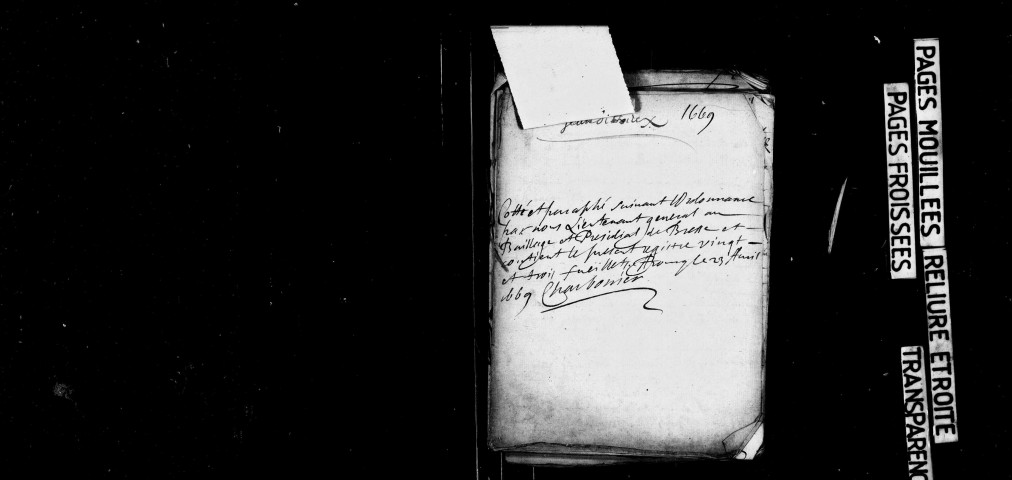 1669
Cotté et paraphé suivant l'Ordonnance
par nous Lieutenant general au
Baillage et Presidial de Bresse et
contient le present registre vingt
et trois feuillets a Bourg le 23 Avril
1669 Charbonier
PAGES MOUILLEES
PAGES FROISSEES
RELIURE ETROITE
TRANSPARENC